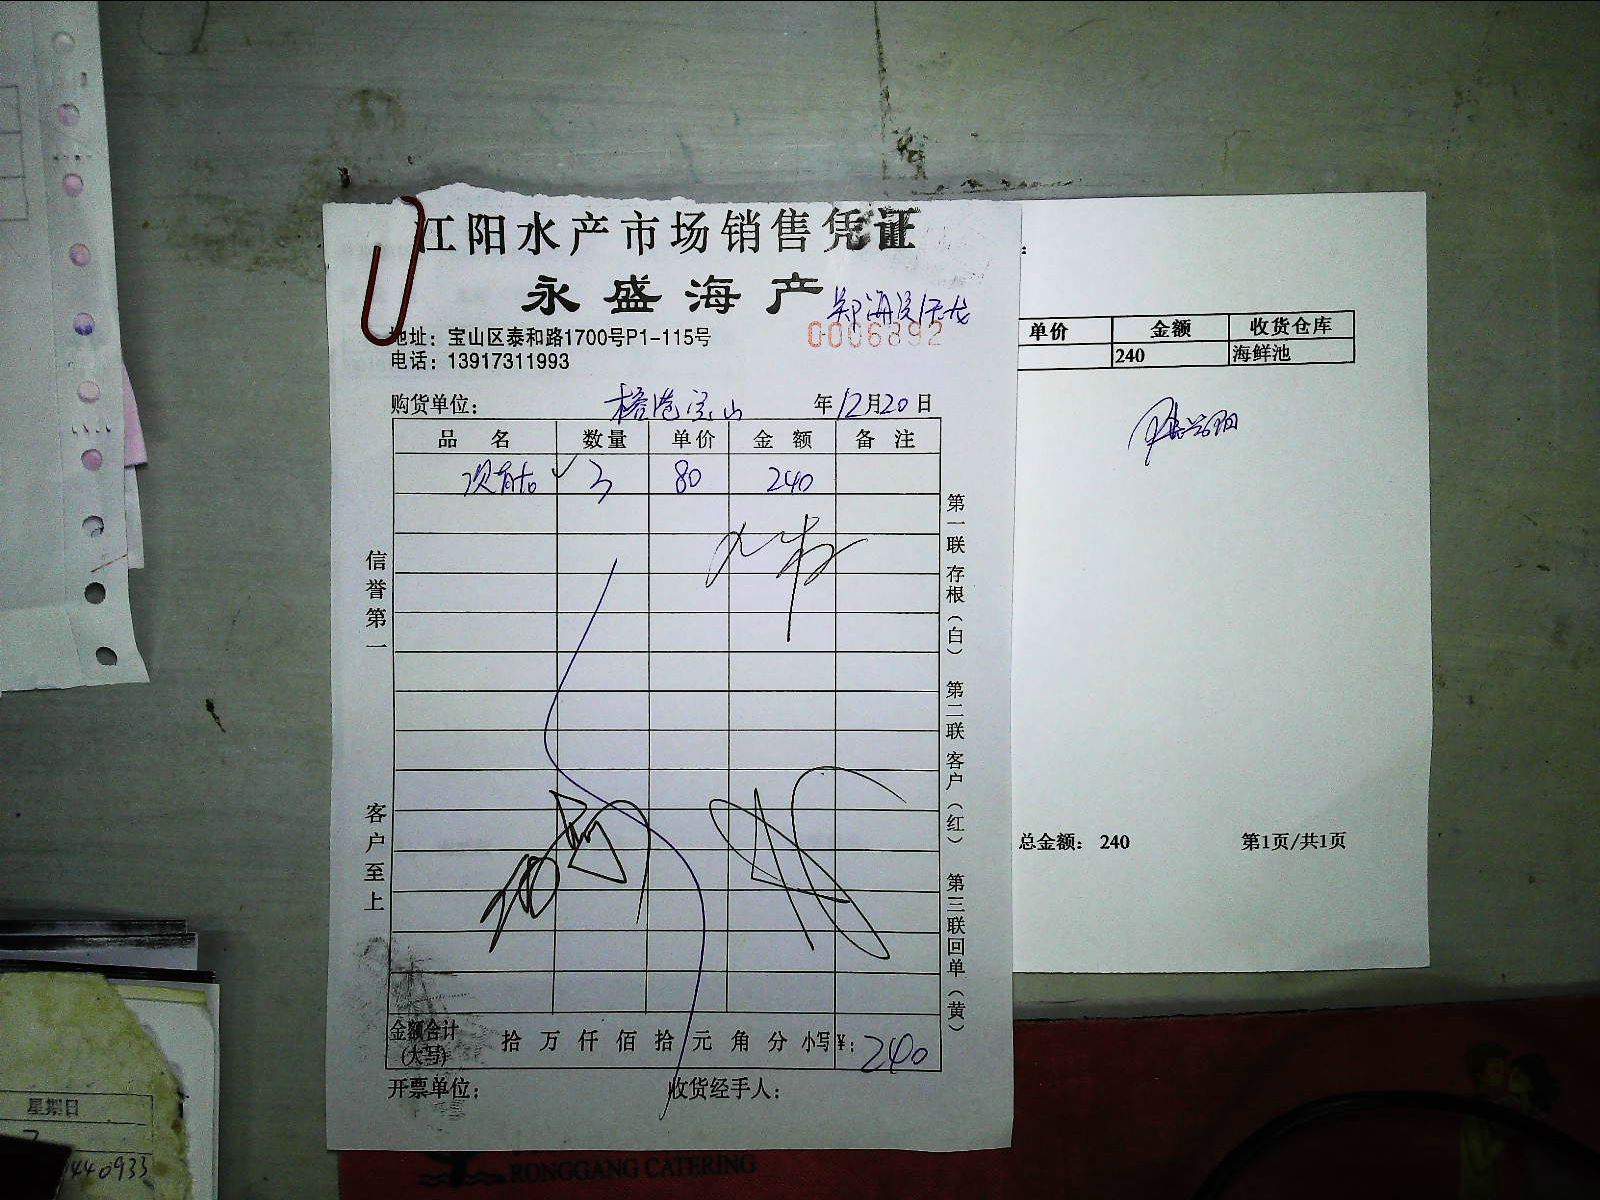 江阳水产市场销售凭证
永盛海产
0006892
地址：宝山区泰和路1700号P1-115号
电话：13917311993
购货单位： 宝山 年12月20日
品 名 数量 单价 金 额 备 注
3 80 240
信誉第一
客户至上
第一联 存根（白） 第二联 客户（红） 第三联 回单（黄）
金额合计（大写） 拾 万 仟 佰 拾 元 角 分 小写¥：240
开票单位： 收货经手人：
单价 金额 收货仓库
240 海鲜池
总金额： 240 第1页/共1页
星期日
440933
RONGGANG CATERING